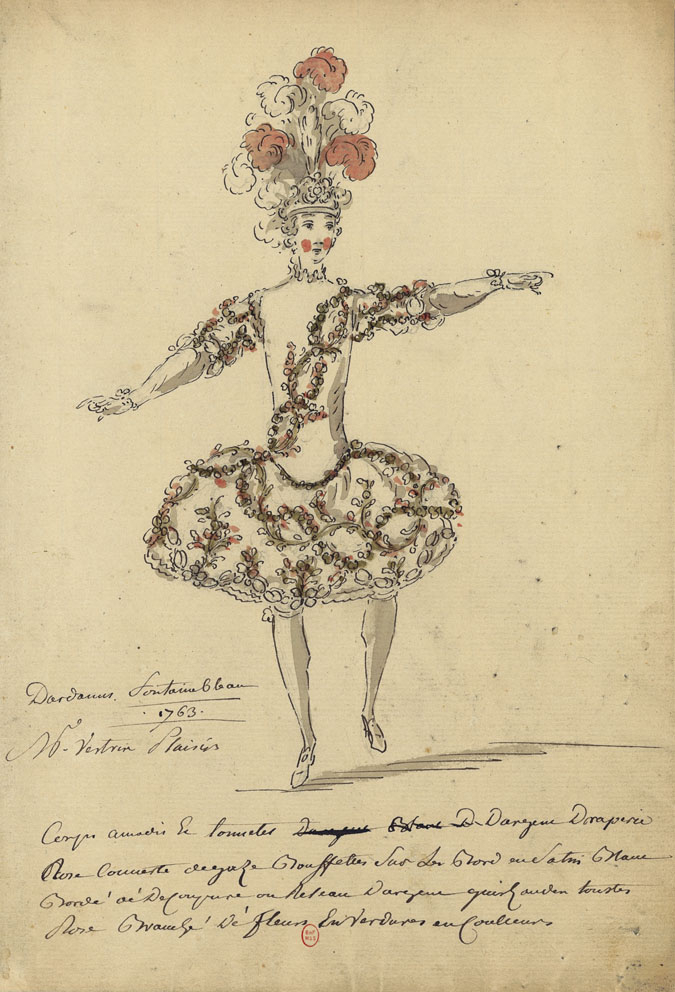 Dardanus. Fontainebleau
1763.
Mr. Vestris Plaisirs
Corps amadis Et tonnelets Dargent Draperie
Rose Couverte de gaze Bouffettes Sur Les Bord en Satin Blanc
Bordé de Decoupure ou Reseau Dargent
Rose Branché De fleurs En Verdures en Couleurs